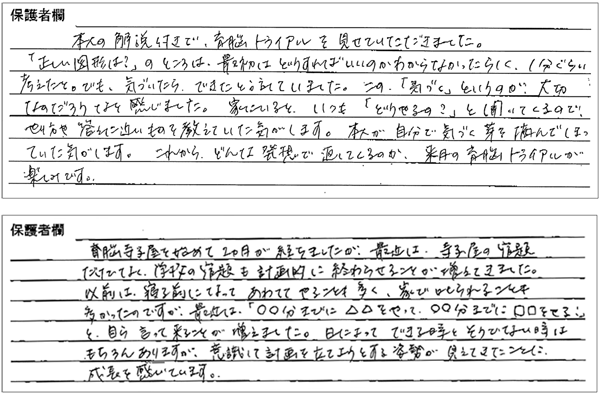 保護者欄
本人の解説付きで、育脳トライアルを見せていただきました。
「正しい図形は?」のところは、最初はどうすればいいのかわからなかったらしく、1分ぐらい
考えたと。でも、気づいたらできたと言っていました。この「気づく」というのが、大切
なのだろうなと感じました。家にいると、いつも「どうやるの?」と聞いてくるので、
やり方や答えに近いものを教えていた気がします。本人が自分で気づく芽を摘んでしまっ
ていた気がします。これから、どんな発想で返してくるのか、来月の育脳トライアルが
楽しみです。
保護者欄
育脳寺子屋を始めて2ヵ月が経ちましたが、最近は、寺子屋の宿題
だけでなく、学校の宿題も計画的に終わらせることが増えてきました。
以前は、寝る前になってあわててやることも多く、家でしかられることも
多かったのですが、最近は、「〇〇分までに△△をやって、〇〇分までに□□をやる!」
と、自ら言って来ることが増えました。日によってできる時とそうでない時は
もちろんありますが、意識して計画を立てようとする姿勢が見えてきたことに
成長を感じています。